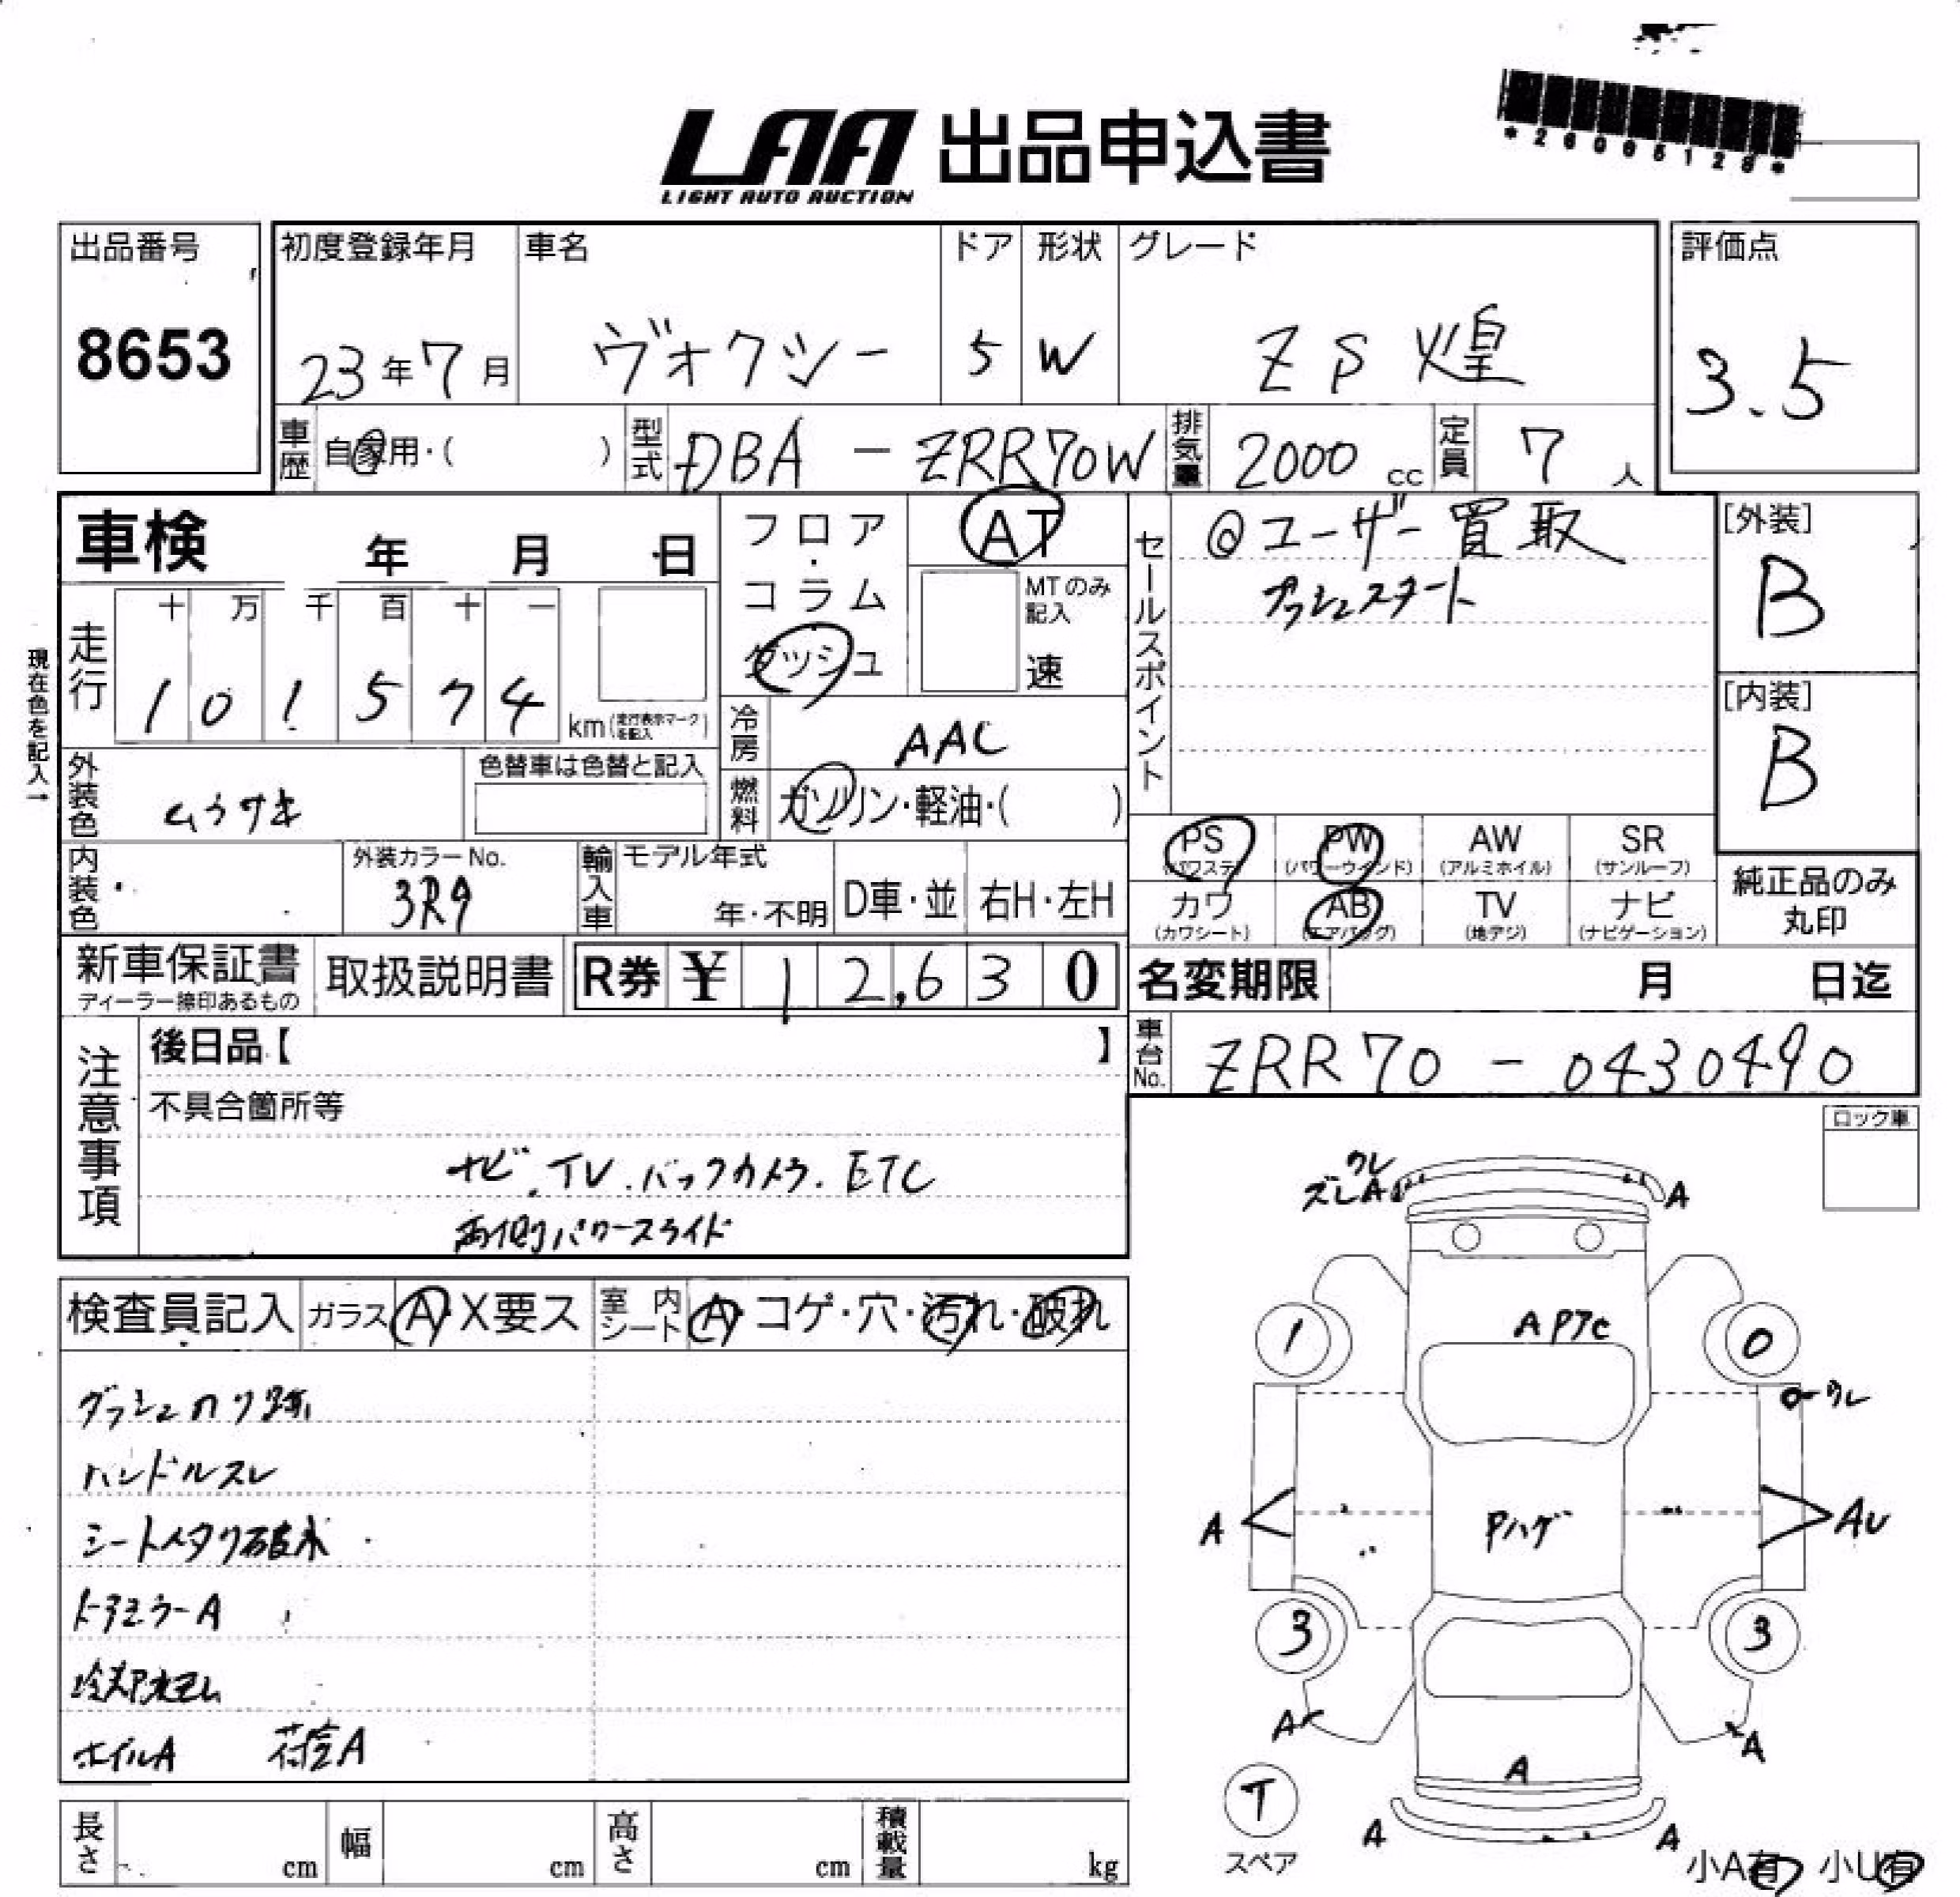 LAA 出品申込書
LIGHT AUTO AUCTION
*26065128*
出品番号
8653
初度登録年月
23年7月
車名
ヴォクシー
ドア
5
形状
W
グレード
ZS 煌
評価点
3.5
車歴 自家用・( )
型式 DBA - ZRR70W
排気量 2000cc
定員 7人
車検 年 月 日
走行 十 万 千 百 十 一
1 0 1 5 7 4 km(走行表示マークを記入)
現在色を記入→
外装色 ムラサキ
色替車は色替と記入
内装色
外装カラーNo.
3R9
フロア・コラム
ダッシュ
AT
MTのみ記入
速
冷房 AAC
燃料 ガソリン・軽油・( )
輸入車 モデル年式
年・不明 D車・並 右H・左H
セールスポイント
◎ユーザー買取
プッシュスタート
[外装]
B
[内装]
B
PS (パワステ) PW (パワーウインド) AW (アルミホイル) SR (サンルーフ)
カワ (カワシート) AB (エアバッグ) TV (地デジ) ナビ (ナビゲーション)
純正品のみ丸印
新車保証書
ディーラー捺印あるもの
取扱説明書
R券 ¥ 12,630
名変期限 月 日迄
車台No. ZRR70 - 0430490
注意事項
後日品【 】
不具合箇所等
ナビ.TV.バックカメラ.ETC
両側パワースライド
ロック車
検査員記入 ガラス A・X要ス 室内シート A・コゲ・穴・汚れ・破れ
ダッシュノリ跡
ハンドルスレ
シートヘタリ破れ
ドアミラーA
冷却水モレ
ホイルA 荷室A
ワレ
ズレA
A
A P75C
1
0
ワレ
A
Pハゲ
AU
3
3
A
A
A
T
スペア
A
A
小A有 小U有
長さ cm 幅 cm 高さ cm 積載量 kg